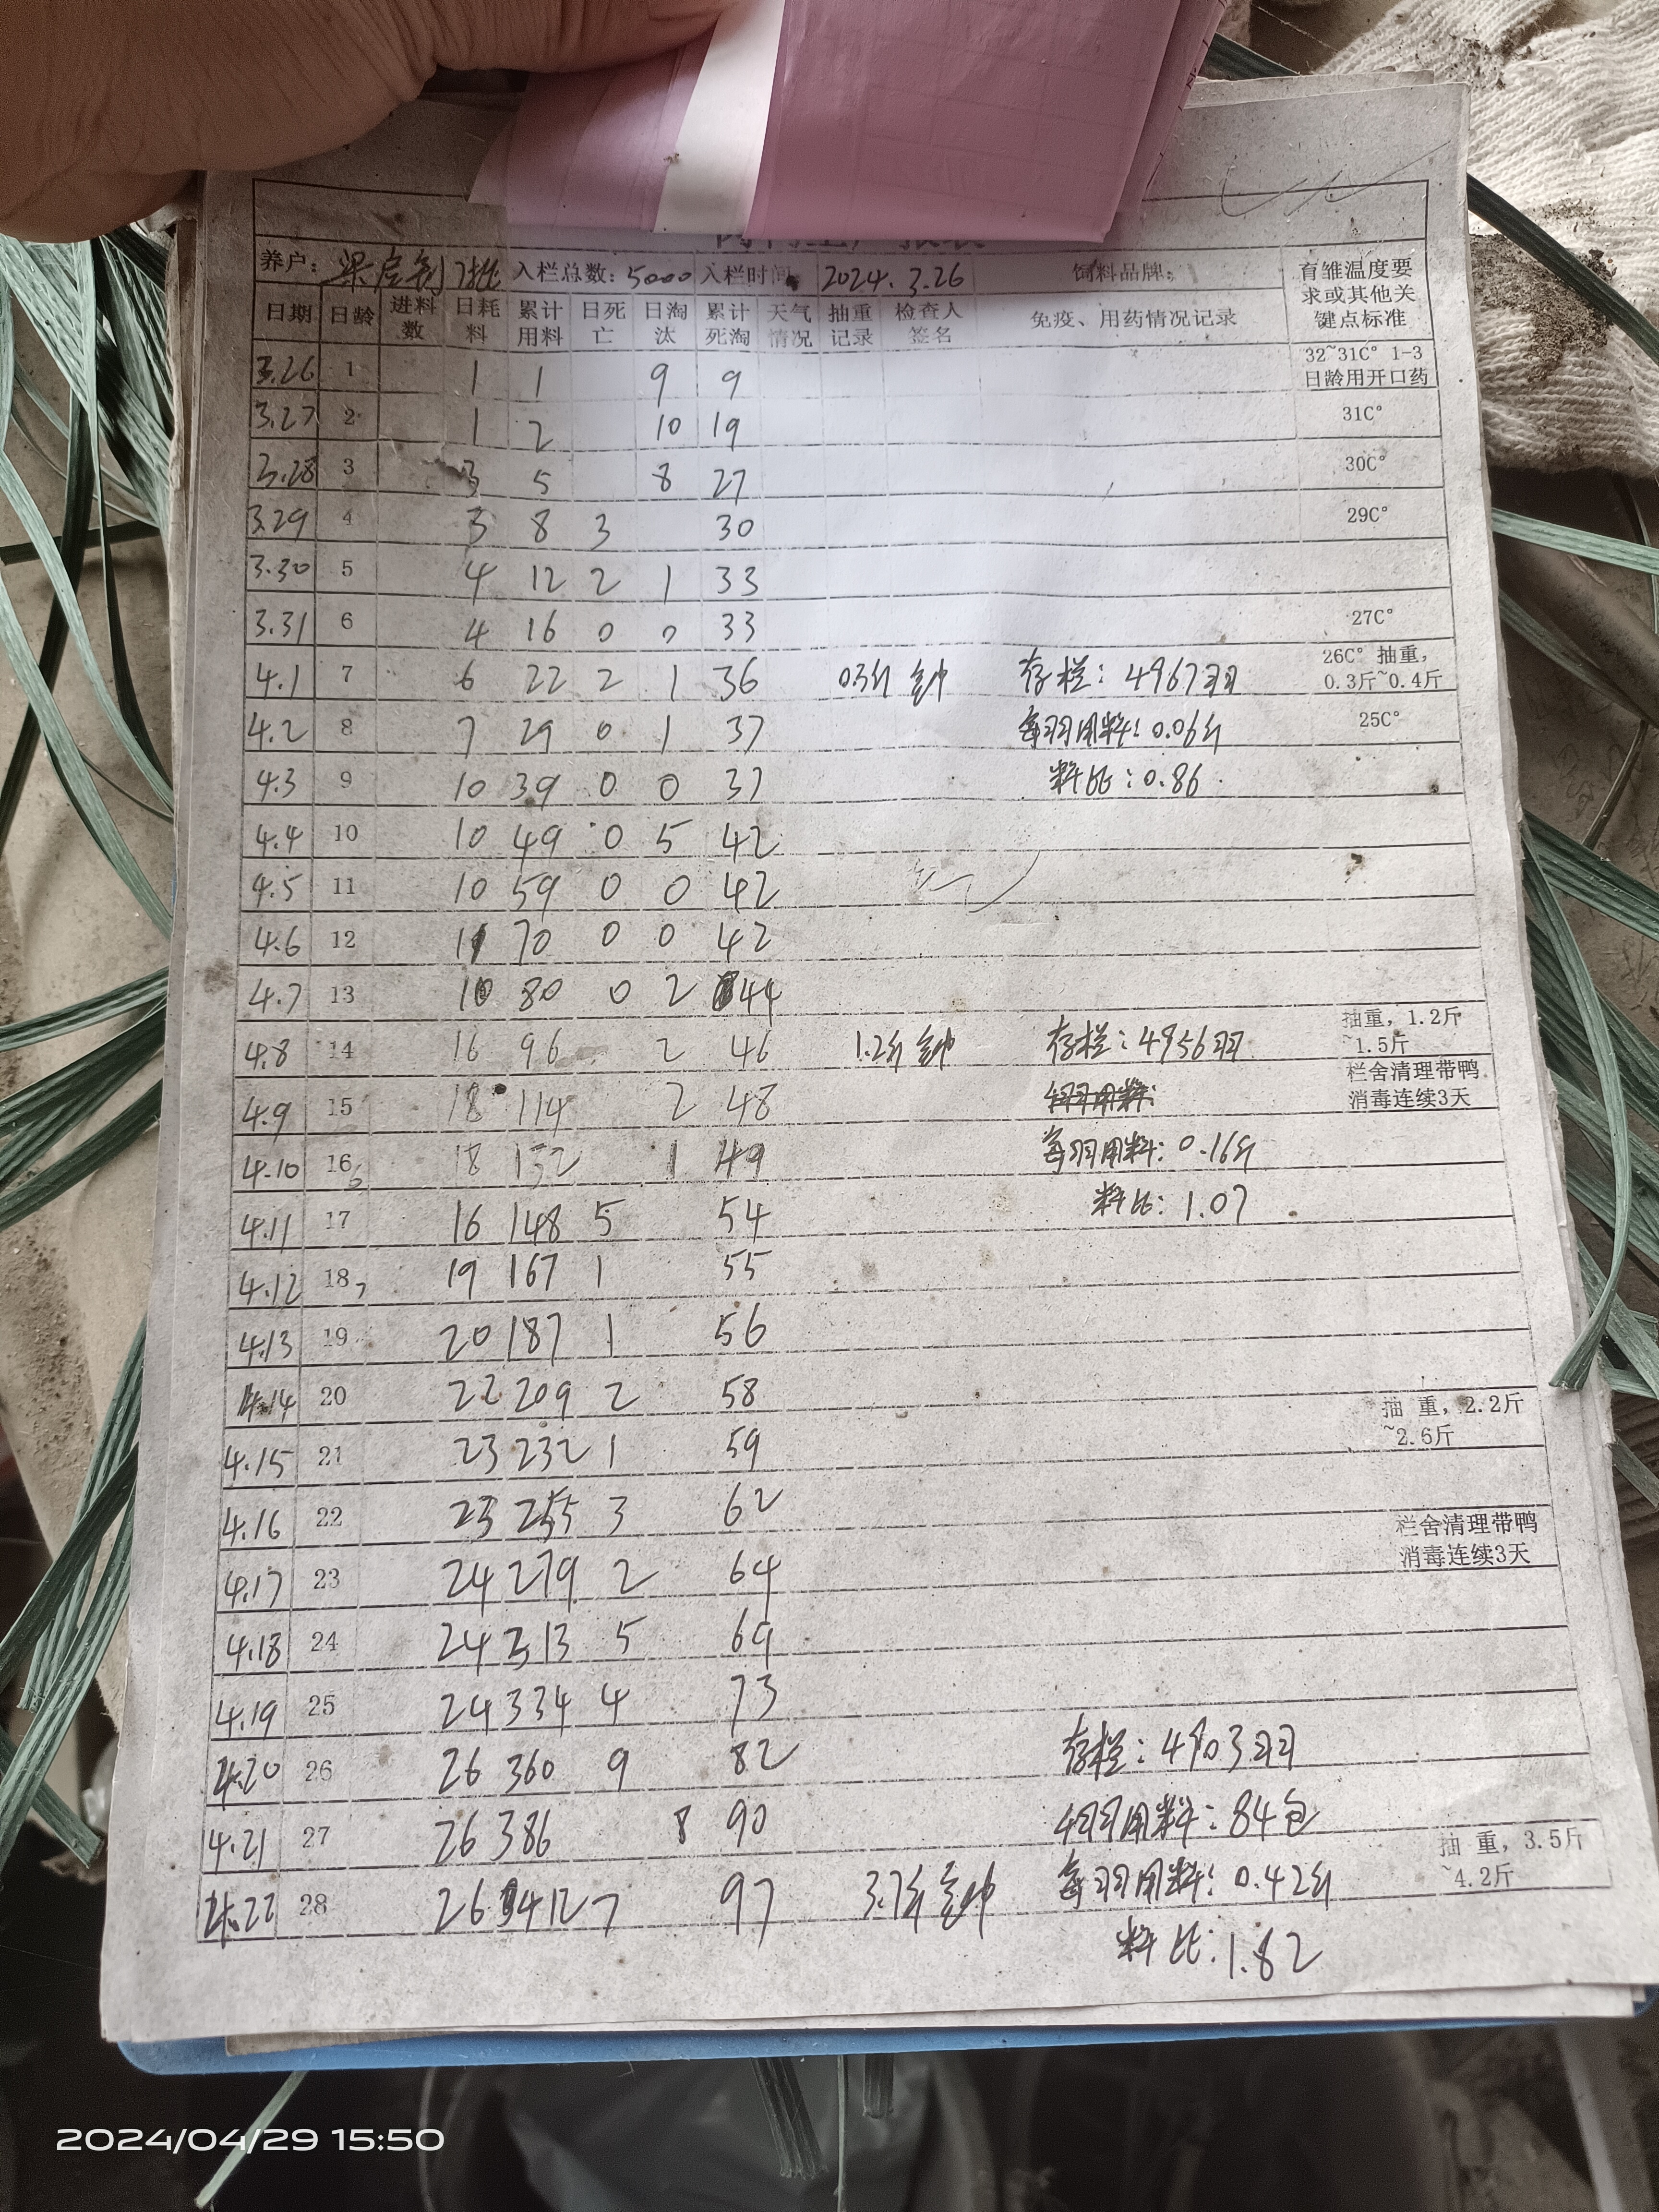 养户: 入栏总数: 5000 入栏时间: 2024.3.26 饲料品牌: 育雏温度要求或其他关键点标准
日期 日龄 进料数 日耗料 累计用料 日死亡 日淘汰 累计死淘 天气情况 抽重记录 检查人签名 免疫、用药情况记录
3.26 1 1 1 9 9 32~31C° 1-3日龄用开口药
3.27 2 1 2 10 19 31C°
3.28 3 3 5 8 27 30C°
3.29 4 3 8 3 30 29C°
3.30 5 4 12 2 1 33
3.31 6 4 16 0 0 33 27C°
4.1 7 6 22 2 1 36 0.3斤 存栏: 4967羽 26C° 抽重, 0.3斤~0.4斤
4.2 8 7 29 0 1 37 每羽用料: 0.06斤 25C°
4.3 9 10 39 0 0 37 料比: 0.86
4.4 10 10 49 0 5 42
4.5 11 10 59 0 0 42
4.6 12 11 70 0 0 42
4.7 13 10 80 0 2 44
4.8 14 16 96 2 46 1.2斤 存栏: 4956羽 抽重, 1.2斤~1.5斤
4.9 15 18 114 2 48 栏舍清理带鸭消毒连续3天
4.10 16 18 132 1 49 每羽用料: 0.16斤
4.11 17 16 148 5 54 料比: 1.07
4.12 18 19 167 1 55
4.13 19 20 187 1 56
4.14 20 22 209 2 58
4.15 21 23 232 1 59 抽 重, 2.2斤~2.6斤
4.16 22 23 255 3 62
4.17 23 24 279 2 64 栏舍清理带鸭消毒连续3天
4.18 24 24 313 5 69
4.19 25 24 334 4 73
4.20 26 26 360 9 82 存栏: 4903羽
4.21 27 26 386 8 90 用料: 84包
4.22 28 26 412 7 97 3.7斤 每羽用料: 0.42斤 抽 重, 3.5斤~4.2斤
料比: 1.82
2024/04/29 15:50